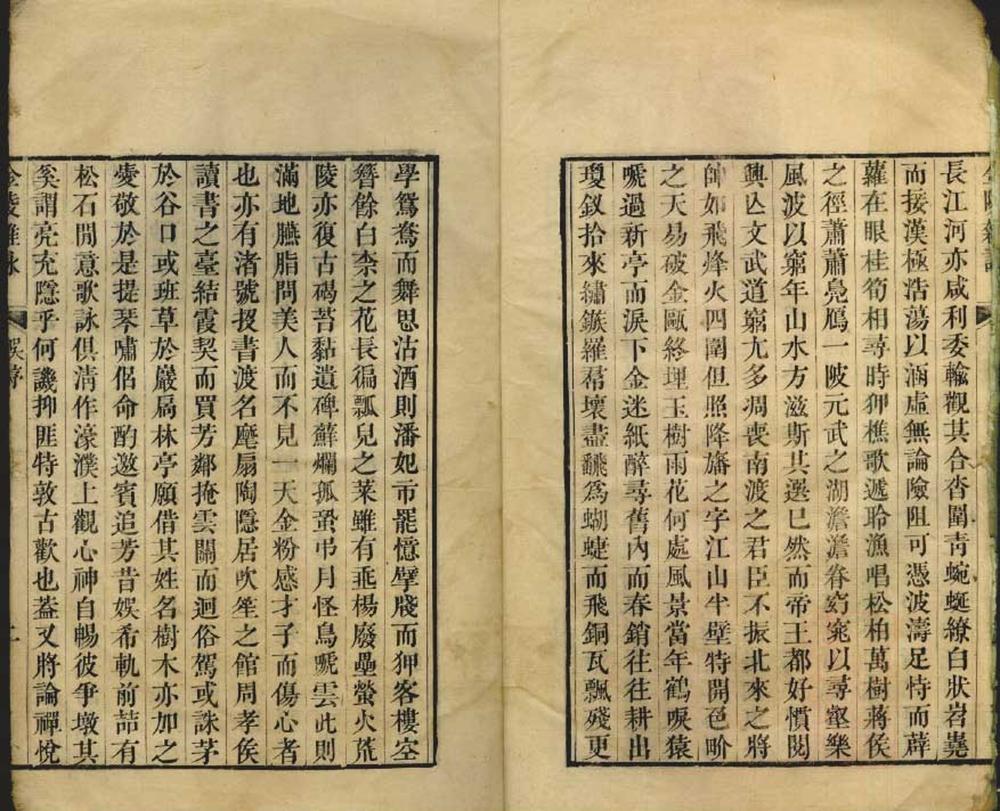 長江河亦咸利委輸觀其合沓圍青蜿蜒繚白狀岩嶤
而接漢極浩蕩以涵虛無論險阻可憑波濤足恃而薜
蘿在眼桂筍相尋時狎樵歌遞聆漁唱松柏萬樹蔣侯
之徑蕭蕭鳧鴈一陂元武之湖澹澹眷窈窕以尋壑樂
風波以窮年山水方滋斯其選已然而帝王都好慣閱
興亡文武道窮尤多凋喪南渡之君臣不振北來之將
帥如飛烽火四圍但照降旛之字江山半壁特開邑畍
之天易破金甌終埋玉樹雨花何處風景當年鶴唳猿
嗁過新亭而淚下金迷紙醉尋舊內而春銷往往耕出
瓊釵拾來繡鏃羅帬壞盡飜爲蝴蜨而飛銅瓦飄殘更
學鴛鴦而舞思沽酒則潘妃市罷憶擘牋而狎客樓空
簪餘白柰之花長徧瓢兒之菜雖有垂楊廢壘螢火荒
陵亦復古碣苔黏遺碑蘚爛孤蛩弔月怪鳥嗁雲此則
滿地臙脂問美人而不見一天金粉感才子而傷心者
也亦有渚號投書渡名麾扇陶隱居吹笙之館周孝侯
讀書之臺結霞契而買芳鄰掩雲關而迴俗駕或誅茅
於谷口或班草於巖扃林亭願借其姓名樹木亦加之
愛敬於是提琴嘯侶命酌邀賓追芳昔娛希軌前喆有
松石閒意歌詠俱清作濠濮上觀心神自暢彼爭墩其
奚謂亮充隱乎何譏抑匪特敦古歡也蓋又將論禪悅
金陵雜詠
二